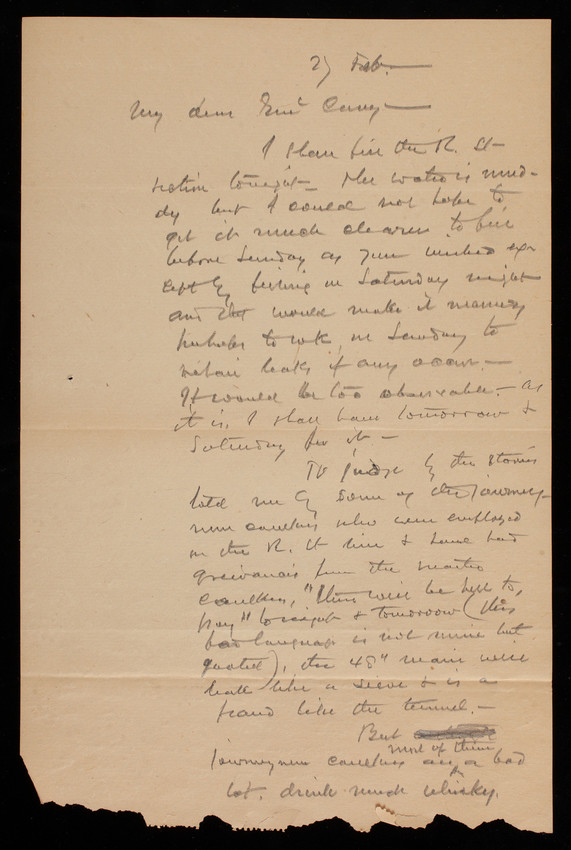 27 Feb.—
My dear Genl Casey—
I shall fill the R. St-
section tonight— The water is mud-
dy but I could not hope to
get it much clearer to fill
before Sunday as you wished ex-
cept by filling on Saturday night
and that would make it necessary
perhaps to work on Sunday to
repair leaks if any occur.—
It would be too observable.— as
it is, I shall have tomorrow &
Saturday for it—
To judge by the stories
told me by some of the journey-
men caulkers who were employed
on the R. St line & have had
grievances from the master
caulker, "there will be hell to
pay" tonight & tomorrow (this
bad language is not mine but
quoted), the 48" main will
leak like a sieve & is a
fraud like the tunnel.—
But
most of them
journeymen caulkers are a bad
lot, drink much whisky.